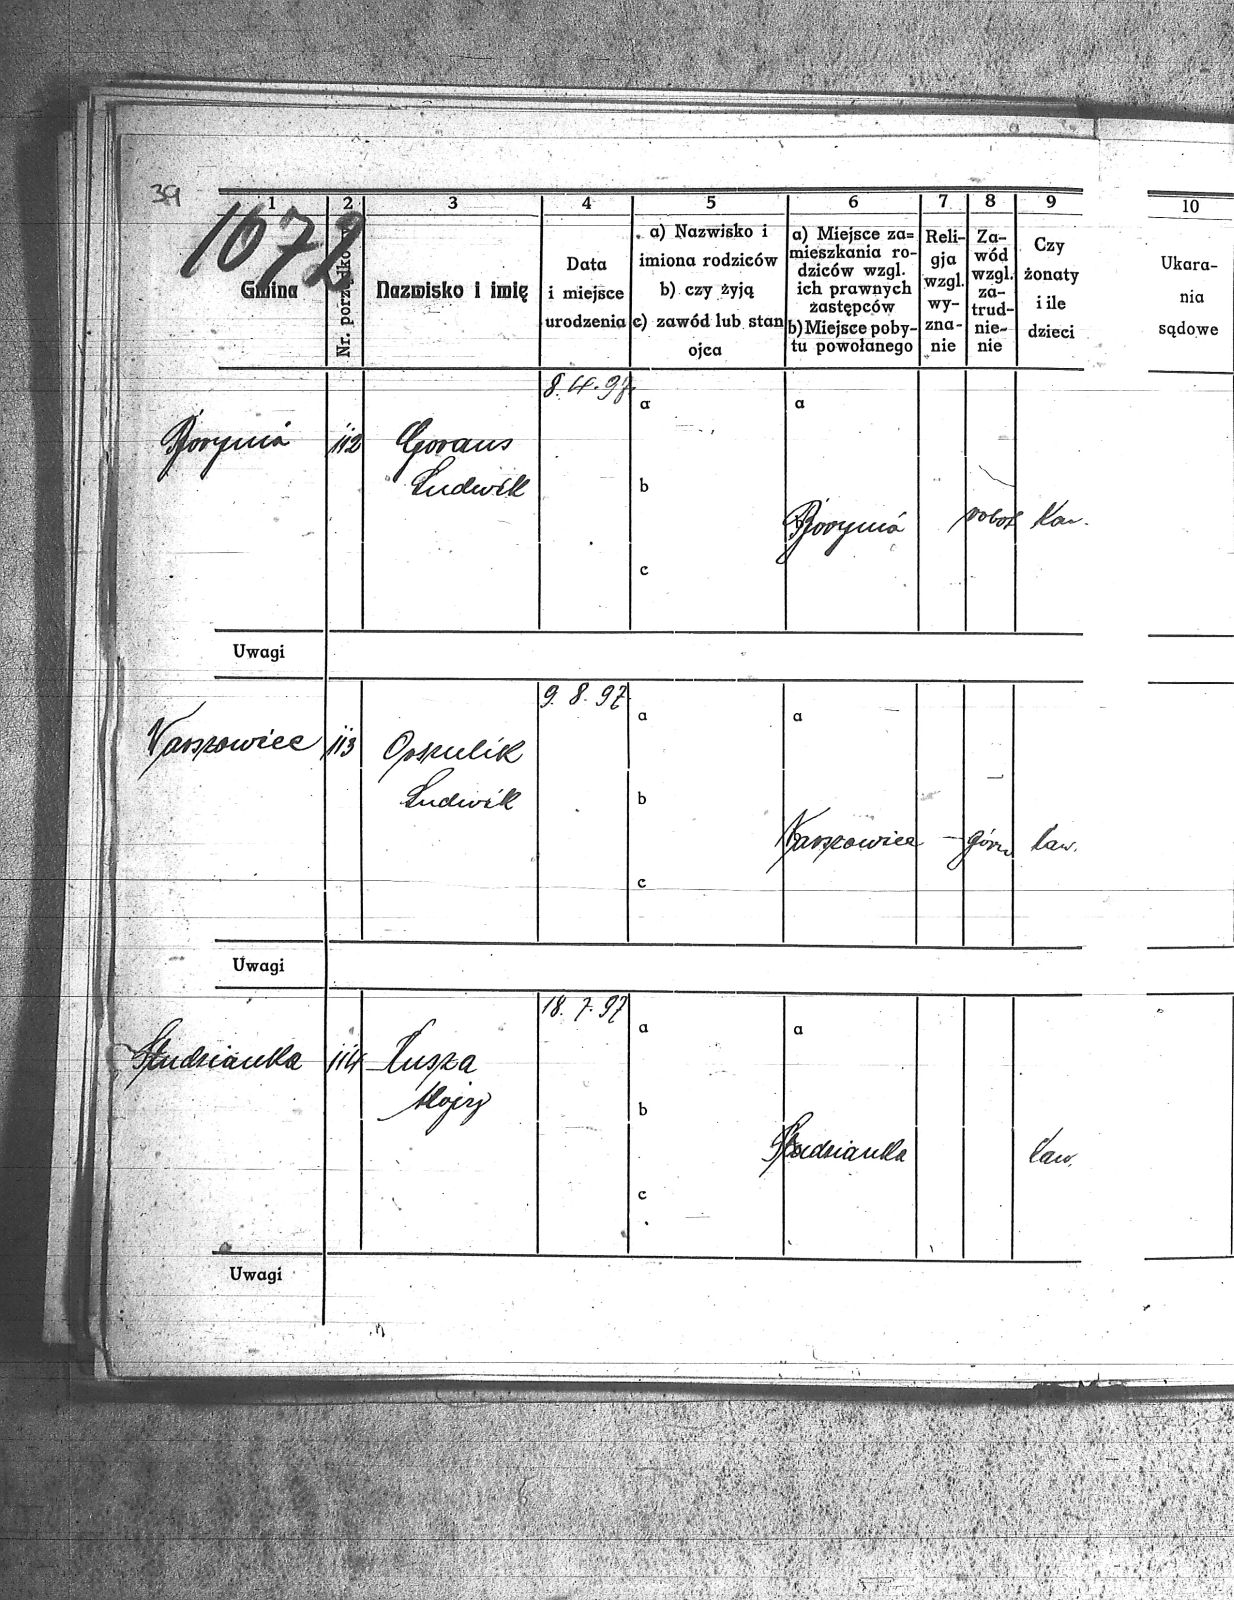 39
1072
1
2
3
4
5
6
7
8
9
10
Gmina
Nr. porządko
Nazwisko i imię
Data
i miejsce
urodzenia
a) Nazwisko i
imiona rodziców
b) czy żyją
c) zawód lub stan
ojca
a) Miejsce za=
mieszkania ro-
dziców wzgl.
ich prawnych
zastępców
b) Miejsce poby-
tu powołanego
Reli-
gja
wzgl.
wy-
zna-
nie
Za-
wód
wzgl.
za-
trud-
nie-
nie
Czy
żonaty
i ile
dzieci
Ukara-
nia
sądowe
8.4.97.
a
a
Borynia
112
Goraus
Ludwik
b
Borynia
robot
Kaw.
c
Uwagi
9.8.97.
a
a
Warszowice
113
Opskulik
Ludwik
b
Warszowice
górn
kaw.
c
Uwagi
18.7.97
a
a
Studzianka
114
Kusza
Alojzy
b
Studzianka
kaw.
c
Uwagi